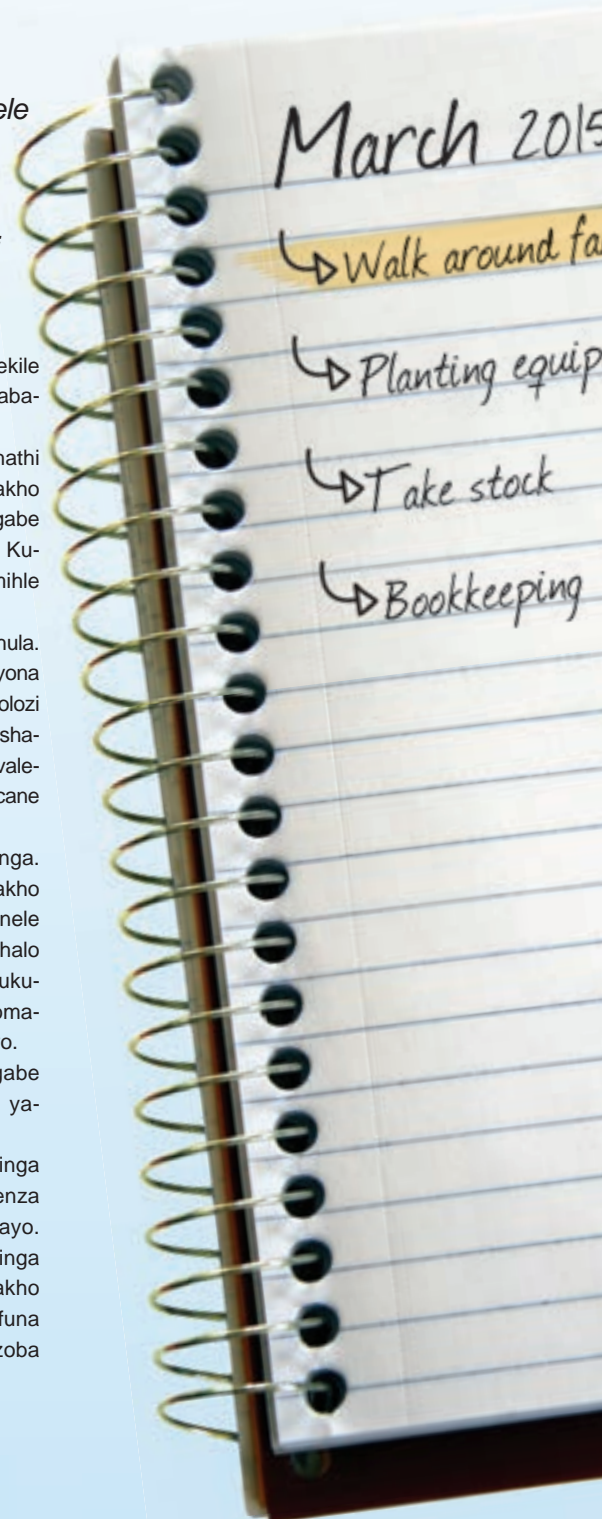 ele
ekile
aba-
nathi
akho
gabe
Ku-
nihle
nula.
yona
olozi
sha-
vale-
cane
nga.
akho
nele
halo
uku-
oma-
o.
gabe
ya-
inga
enza
ayo.
inga
akho
funa
zoba
March 2015
Walk around fa
Planting equip
Take stock
Bookkeeping